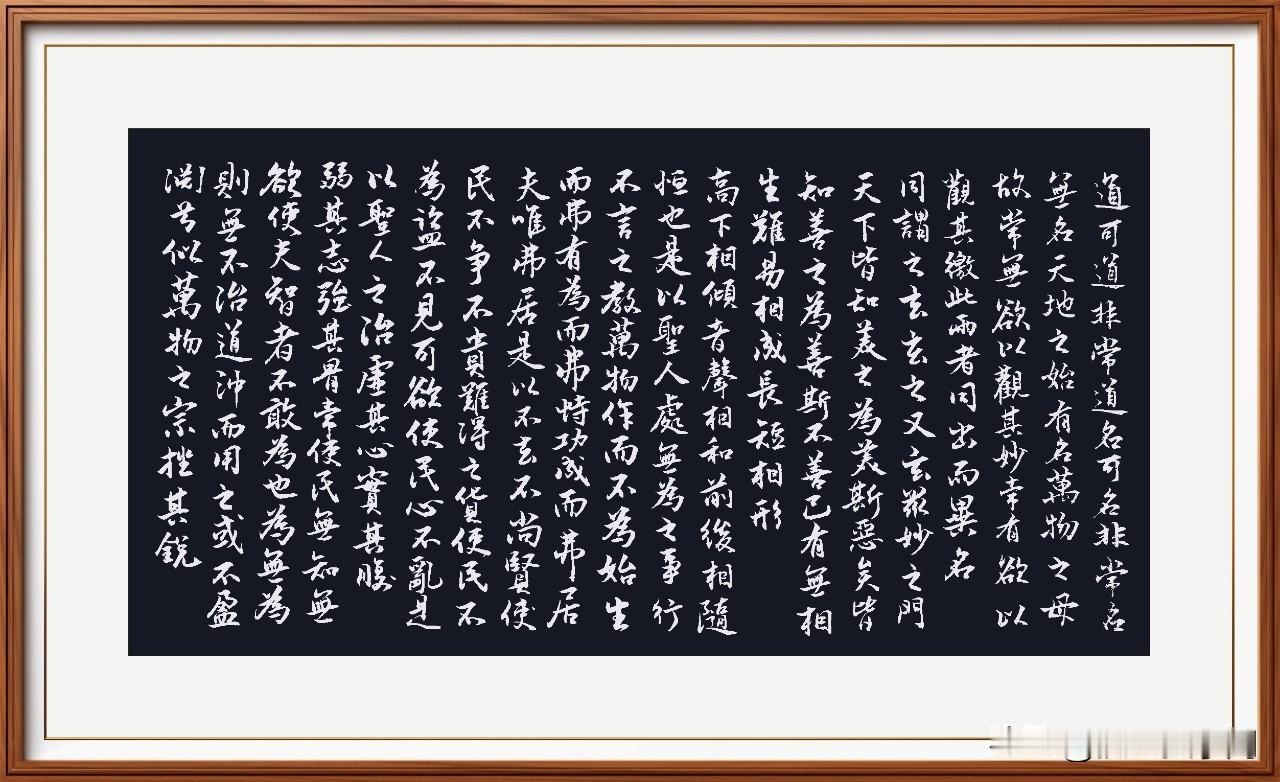 道可道非常道名可名非常名
無名天地之始有名萬物之母
故常無欲以觀其妙常有欲以
觀其徼此兩者同出而異名
同謂之玄玄之又玄眾妙之門
天下皆知美之為美斯惡矣皆
知善之為善斯不善已有無相
生難易相成長短相形
高下相傾音聲相和前後相隨
恒也是以聖人處無為之事行
不言之教萬物作而不為始生
而弗有為而弗恃功成而弗居
夫唯弗居是以不去不尚賢使
民不爭不貴難得之貨使民不
為盜不見可欲使民心不亂是
以聖人之治虛其心實其腹
弱其志強其骨常使民無知無
欲使夫智者不敢為也為無為
則無不治道沖而用之或不盈
淵兮似萬物之宗挫其銳